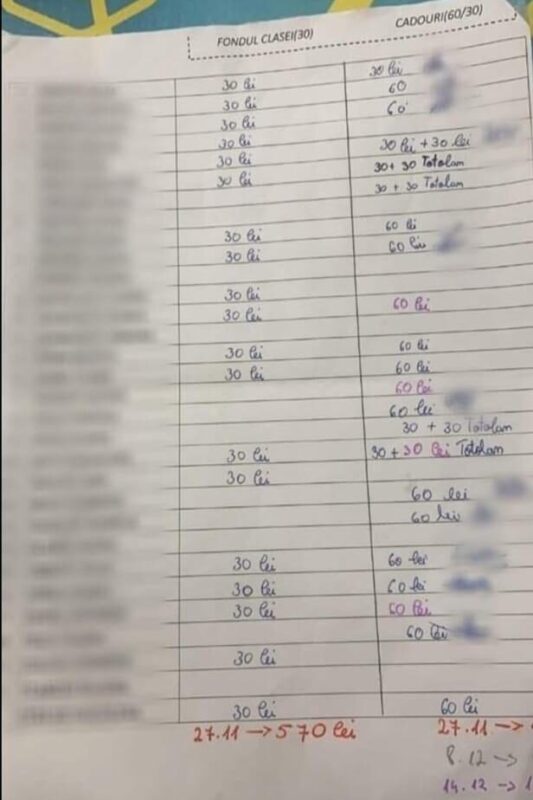 FONDUL CLASEI(30) CADOURI(60/30)
30 lei 30 lei
30 lei 60
30 lei 60
30 lei
30 lei 30 lei + 30 lei
30 lei 30 + 30 Totalam
30 + 30 Totalam
30 lei 60 lei
30 lei 60 lei
30 lei
30 lei 60 lei
30 lei 60 lei
30 lei 60 lei
60 lei
60 lei
30 + 30 Totalam
30 lei 30 + 30 lei Totalam
30 lei
60 lei
60 lei
30 lei 60 lei
30 lei 60 lei
30 lei 60 lei
60 lei
30 lei
30 lei 60 lei
27.11 → 570 lei 27.11 →
8.12 →
14.12 →